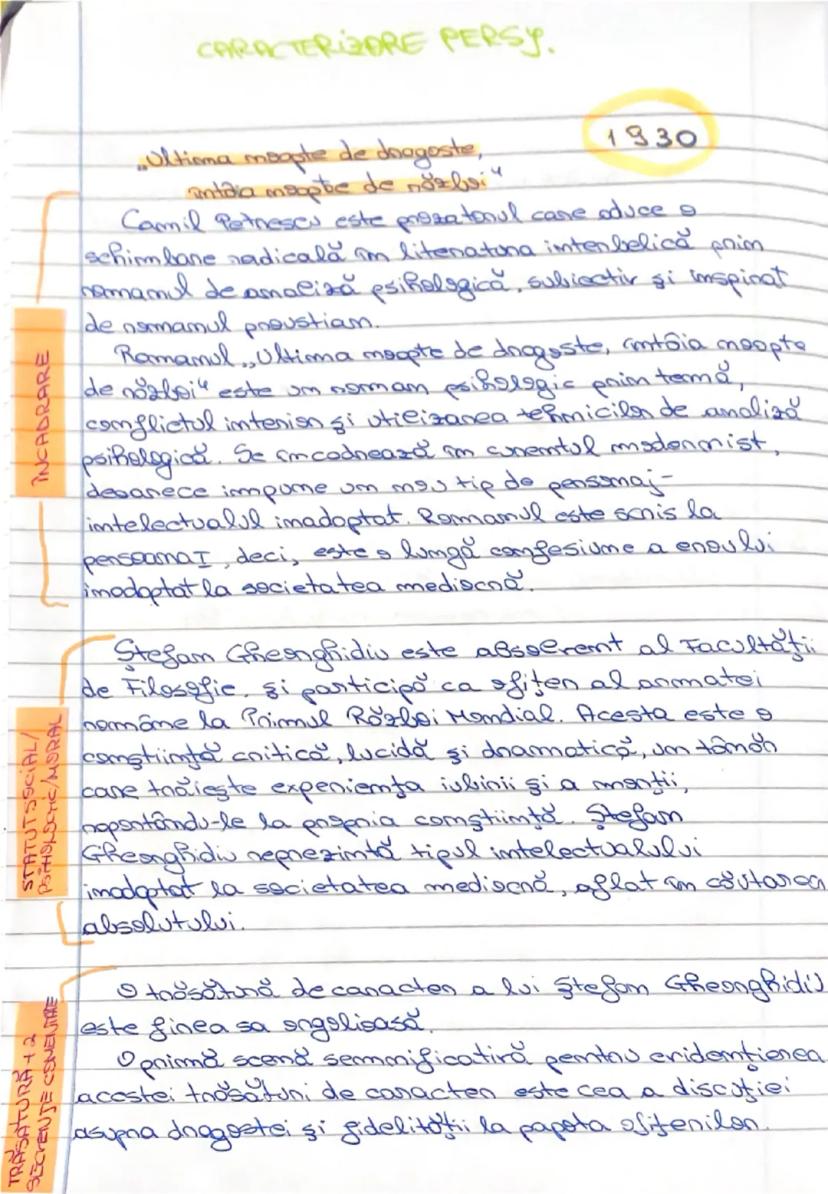 CARACTERIZARE PERSJ.
1930
„Ultima noapte de dragoste,
întâia noapte de război"
Camil Petrescu este prozatorul care aduce o
schimbare radicală în literatura interbelică prin
romanul de analiză psihologică, subiectiv și inspirat
de romanul proustian.
Romanul „Ultima noapte de dragoste, întâia noapte
de război" este un roman psihologic prin temă,
conflictul interior și utilizarea tehnicilor de analiză
psihologică. Se încadrează în curentul modernist,
deoarece impune un nou tip de personaj-
intelectualul inadaptat. Romanul este scris la
persoana I, deci, este o lungă confesiune a eroului
inadaptat la societatea mediocră.
ÎNCADRARE
Ștefan Gheorghidiu este absolvent al Facultății
de Filosofie, și participă ca ofițer al armatei
române la Primul Război Mondial. Acesta este o
conștiință critică, lucidă și dramatică, un tânăr
care trăiește experiența iubirii și a morții,
raportându-le la propria conștiință. Ștefan
Gheorghidiu reprezintă tipul intelectualului
inadaptat la societatea mediocră, aflat în căutarea
absolutului.
STATUT SOCIAL/
PSIHOLOGIC/MORAL
O trăsătură de caracter a lui Ștefan Gheorghidiu
este firea sa orgolioasă.
O primă scenă semnificativă pentru evidențierea
acestei trăsături de caracter este cea a discuției
asupra dragostei și fidelității la popota ofițerilor.
TRĂSĂTURĂ + 2
SECVENȚE COMENTATE